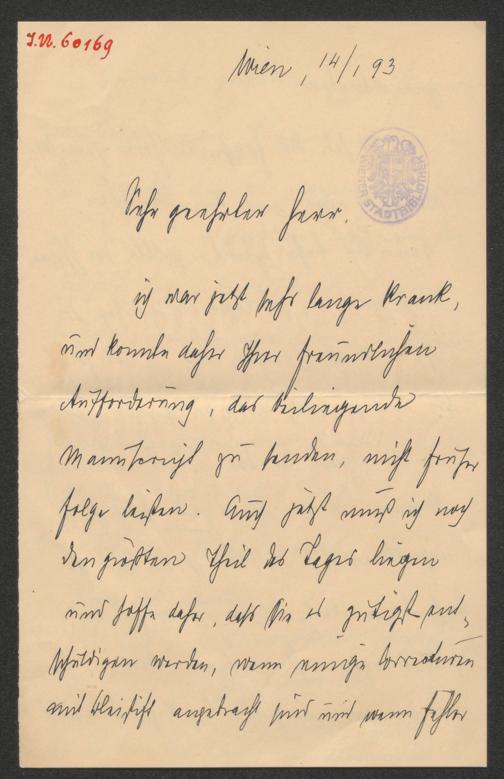 I.N. 60169
Wien, 14/1 93
WIENER STADTBIBLIOTHEK
Sehr geehrter Herr.
ich war jetzt sehr lange krank,
und konnte daher Ihrer freundlichen
Aufforderung, das beiliegende
Manuscript zu senden, nicht früher
folge leisten. Auch jetzt muß ich noch
den größten Theil des Tages liegen
und hoffe daher, daß Sie es gütigst ent-
schuldigen werden, wenn einige Correcturen
mit Bleistift angebracht sind und wenn Fehler